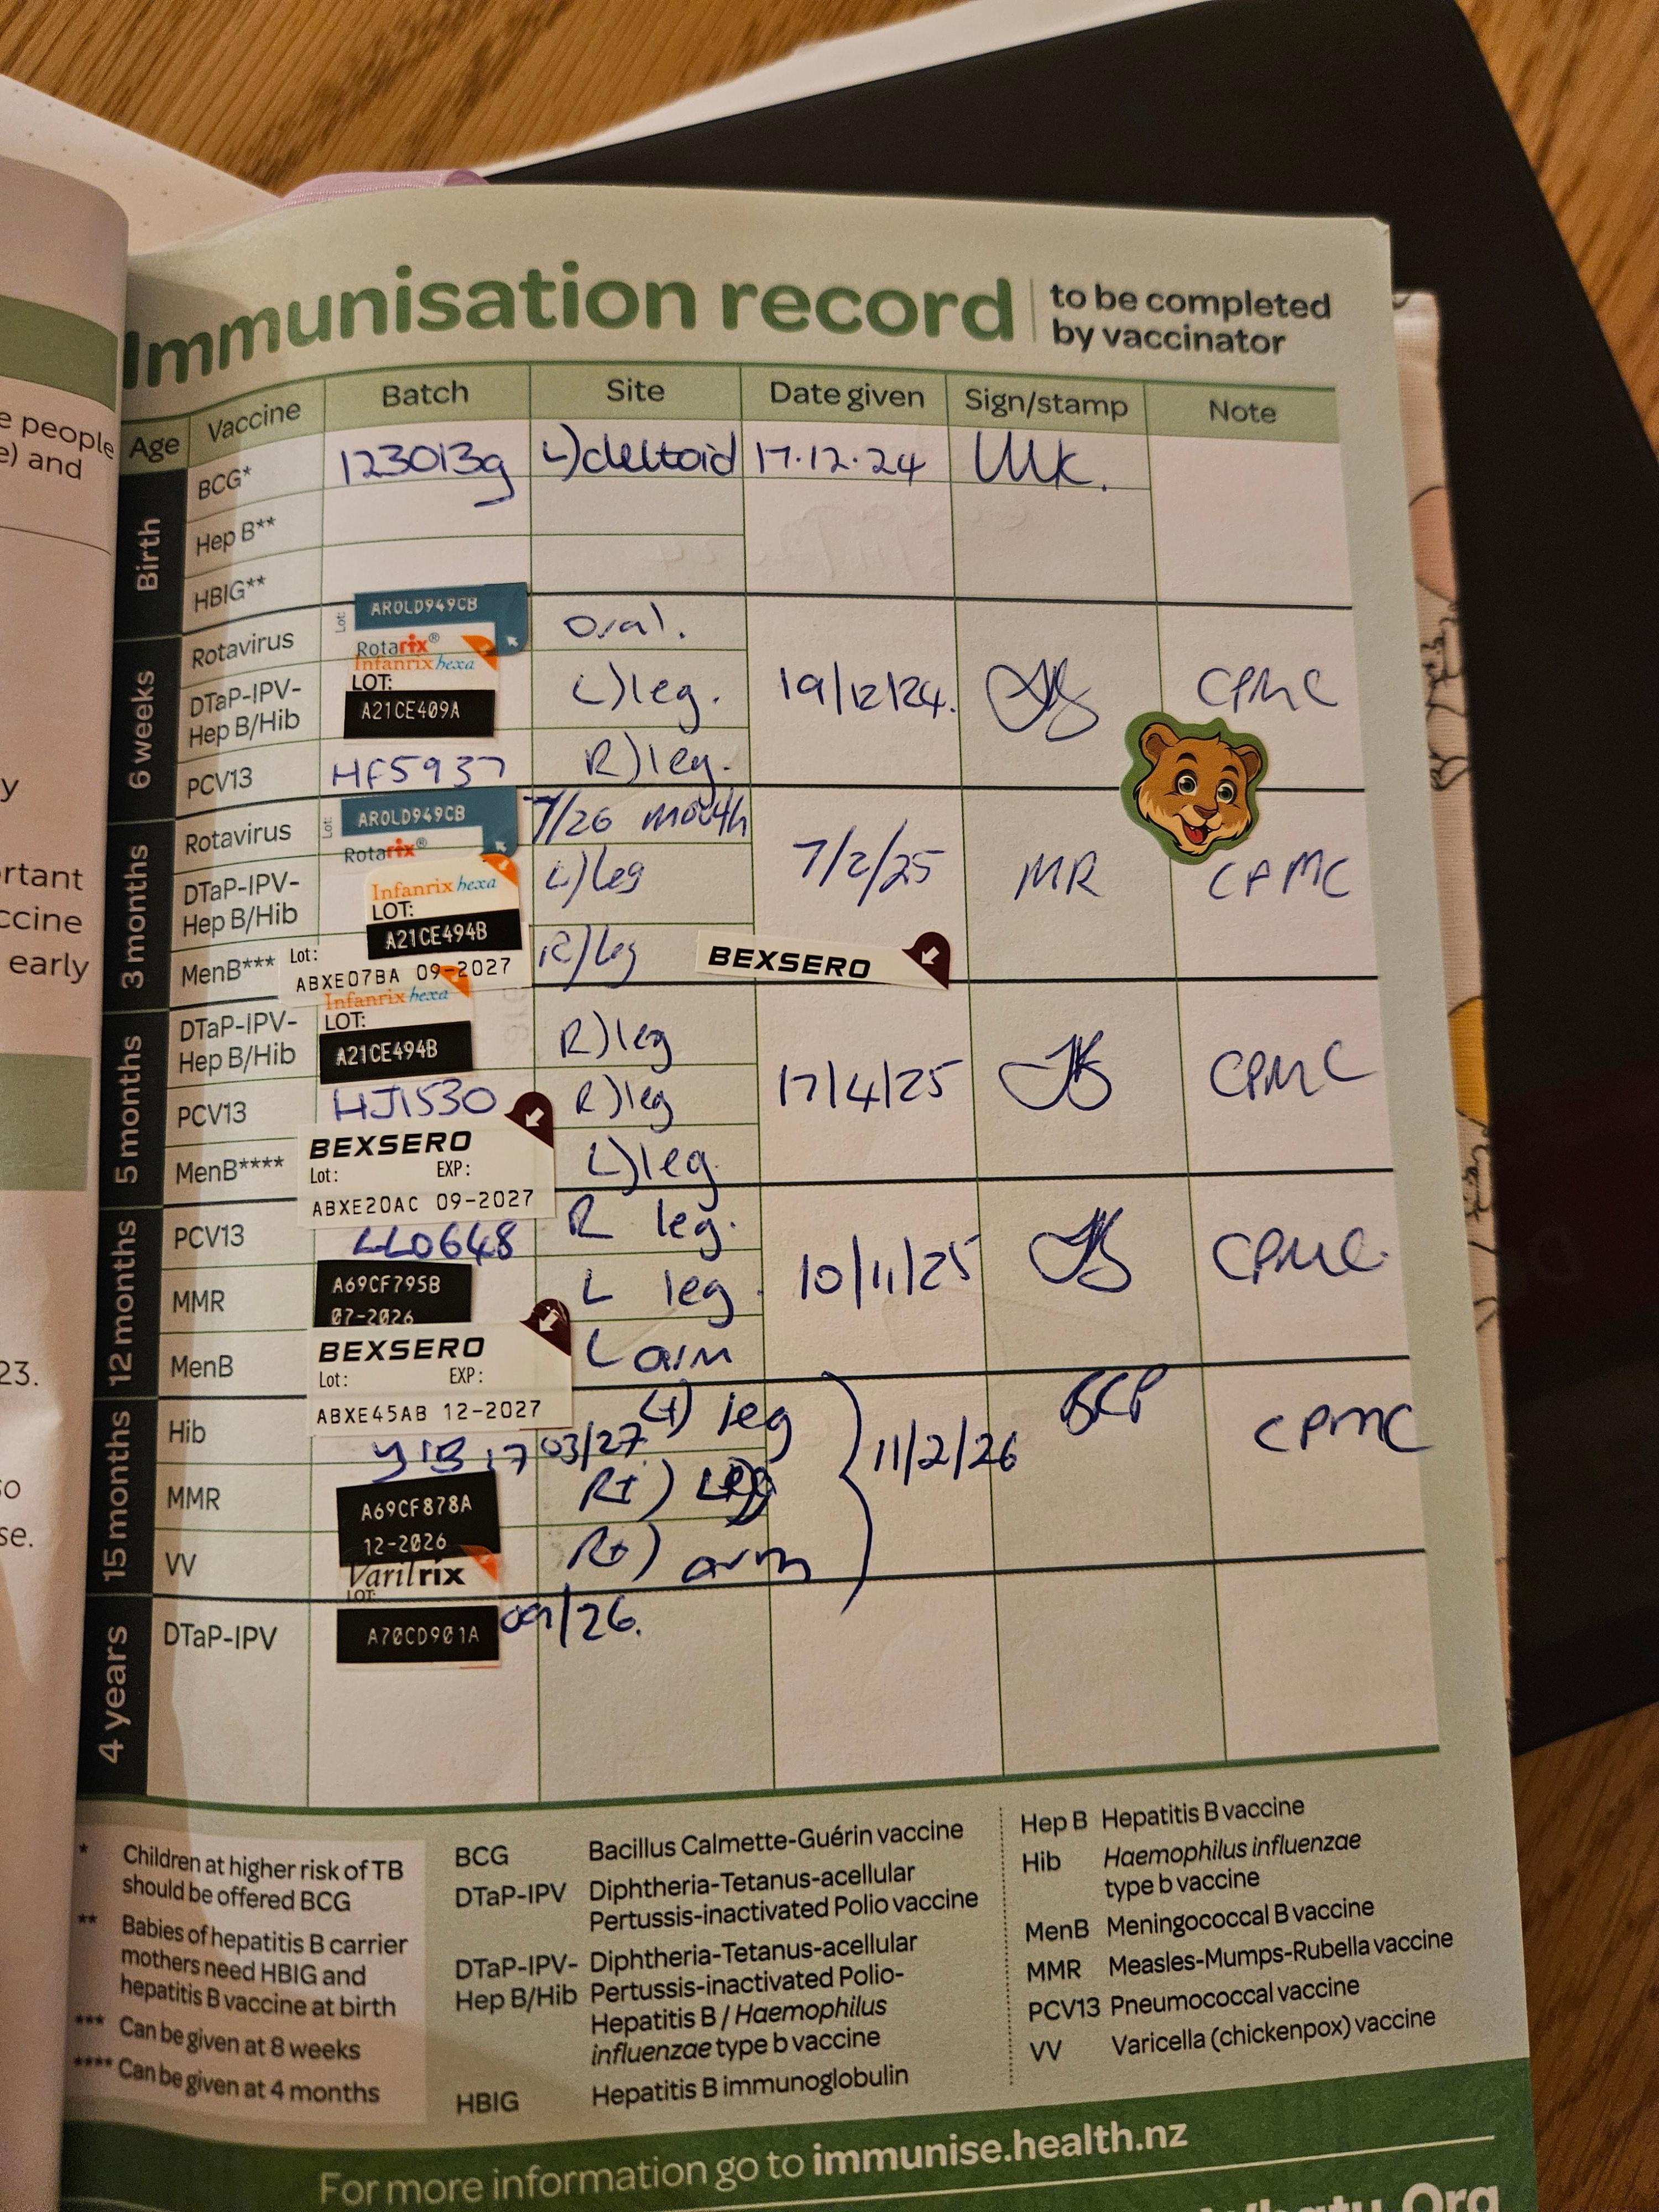 e people
e) and
y
rtant
ccine
early
23.
so
se.
Immunisation record
to be completed
by vaccinator
Age Vaccine Batch Site Date given Sign/stamp Note
Birth
BCG* 123013g L) deltoid 17.12.24
Hep B**
HBIG**
6 weeks
Rotavirus Lot: AROLD949CB Rotarix® oral.
DTaP-IPV-
Hep B/Hib
Infanrix hexa
LOT:
A21CE409A
L) leg. 19/12/24. CPMC
PCV13 HF5937 R) leg.
3 months
Rotavirus Lot: AROLD949CB Rotarix® 7/26 mouth
DTaP-IPV-
Hep B/Hib
Infanrix hexa
LOT:
A21CE494B
L) leg 7/2/25 MR CPMC
MenB*** Lot:
ABXE07BA 09-2027
R) leg BEXSERO
5 months
DTaP-IPV-
Hep B/Hib
Infanrix hexa
LOT:
A21CE494B
R) leg 17/4/25 CPMC
PCV13 HJ1530 R) leg
MenB**** BEXSERO
Lot: EXP:
ABXE20AC 09-2027
L) leg.
12 months
PCV13 LL0648 R leg.
MMR A69CF795B
07-2026
L leg. 10/11/25 CPMC
MenB BEXSERO
Lot: EXP:
ABXE45AB 12-2027
L arm
15 months
Hib 03/27 leg
MMR A69CF878A
12-2026
Rt) Leg 11/2/26 CPMC
VV Varilrix
LOT:
A70CD901A 09/26.
Rt) arm
4 years
DTaP-IPV
* Children at higher risk of TB
should be offered BCG
** Babies of hepatitis B carrier
mothers need HBIG and
hepatitis B vaccine at birth
*** Can be given at 8 weeks
**** Can be given at 4 months
BCG Bacillus Calmette-Guérin vaccine
DTaP-IPV Diphtheria-Tetanus-acellular
Pertussis-inactivated Polio vaccine
DTaP-IPV- Diphtheria-Tetanus-acellular
Hep B/Hib Pertussis-inactivated Polio-
Hepatitis B / Haemophilus
influenzae type b vaccine
HBIG Hepatitis B immunoglobulin
Hep B Hepatitis B vaccine
Hib Haemophilus influenzae
type b vaccine
MenB Meningococcal B vaccine
MMR Measles-Mumps-Rubella vaccine
PCV13 Pneumococcal vaccine
VV Varicella (chickenpox) vaccine
For more information go to immunise.health.nz